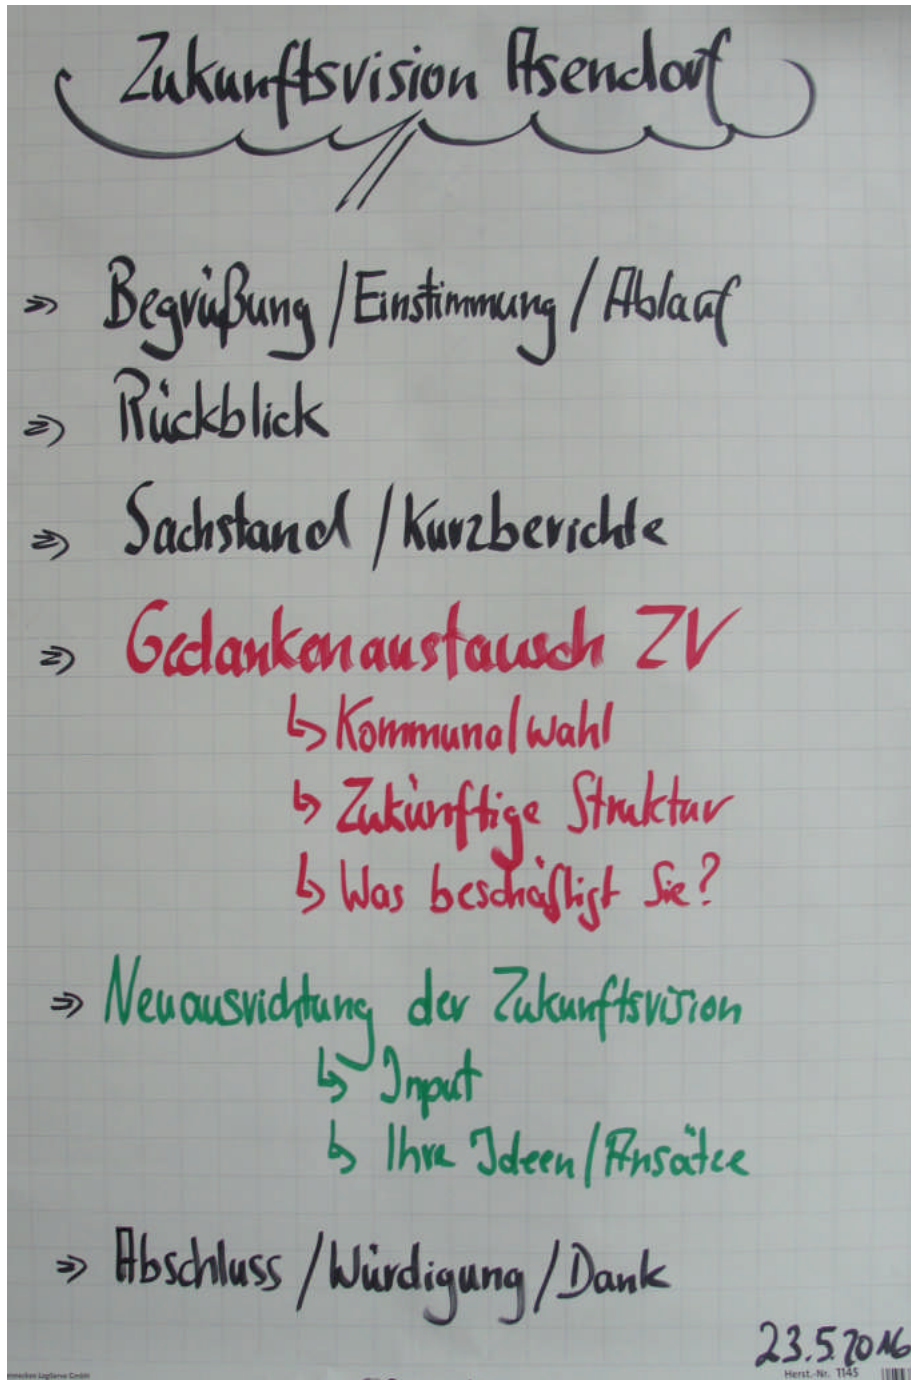 Zukunftsvision Asendorf
Begrüßung / Einstimmung / Ablauf
Rückblick
Sachstand / Kurzberichte
Gedankenaustausch ZV
Kommunalwahl
Zukünftige Struktur
Was beschäftigt Sie?
Neuausrichtung der Zukunftsvision
Input
Ihre Ideen / Ansätze
Abschluss / Würdigung / Dank
23.5.2016
LogServe GmbH Herst.-Nr. 1145